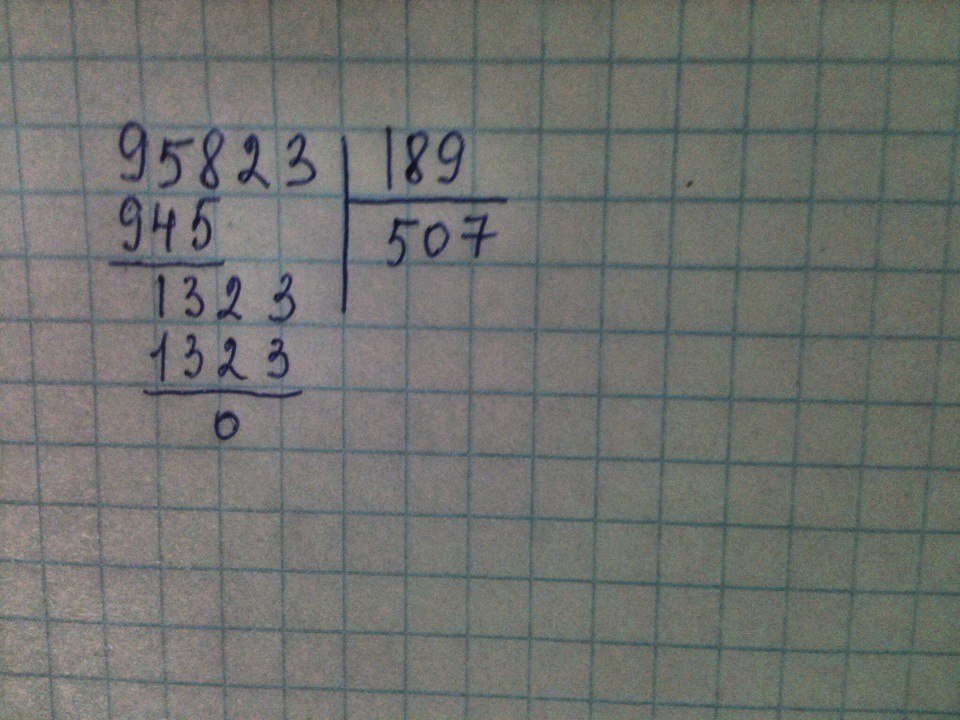 95823 189
945 507
1323
1323
0